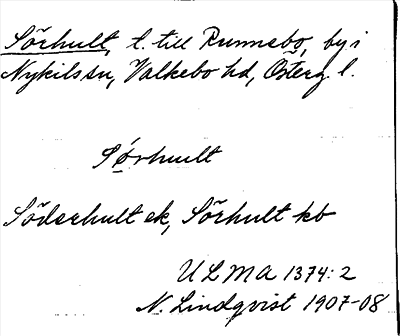 Sörhult, t. till Runnebo, by i
Nykils sn, Valkebo hd, Österg. l.
Sørhult
Söderhult ek, Sörhult kb
ULMA 1374:2
N. Lindqvist 1907-08